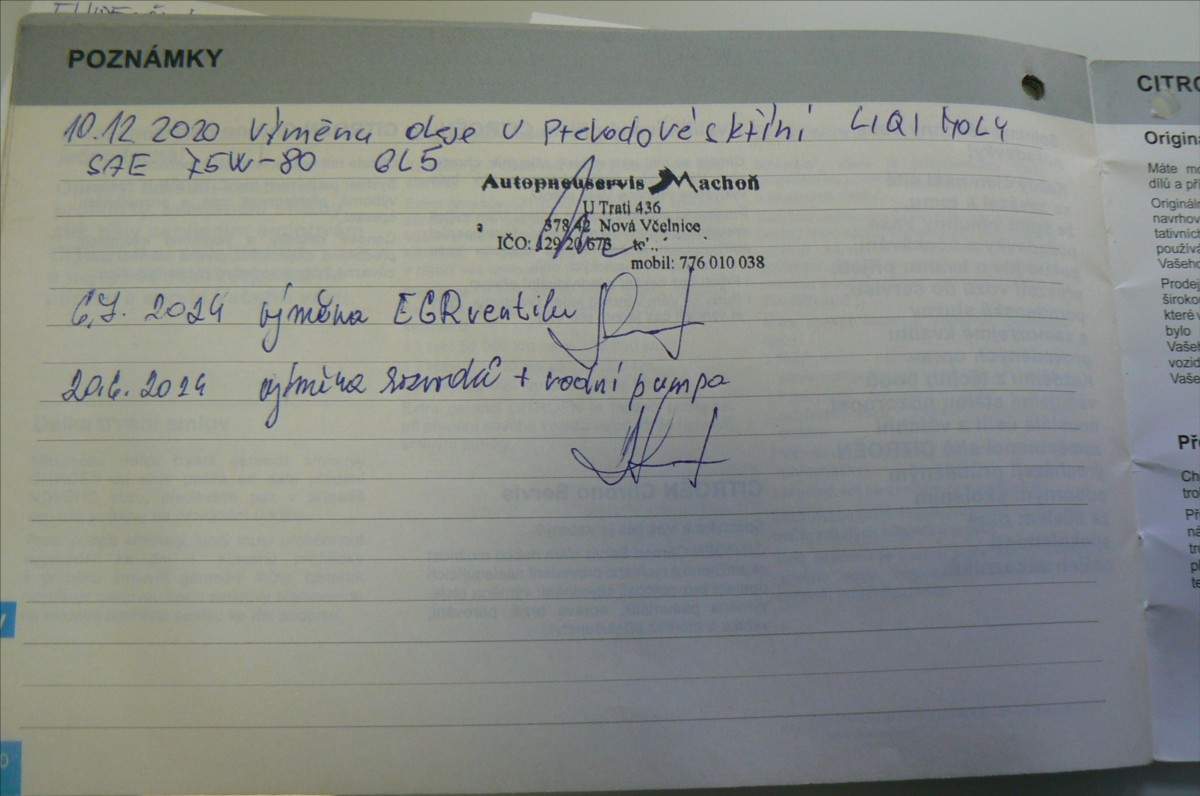 POZNÁMKY
10.12 2020 Výměna oleje v převodové skříni LIQI MOLY
SAE 75W-80 GL5
Autopneuservis Machoň
U Trati 436
378 42 Nová Včelnice
IČO: 129 20 673
mobil: 776 010 038
6.7. 2024 výměna EGRventilu
20.6. 2024 výměna rozvodů + vodní pumpa
CITRO
Origina
Máte mo
dílů a při
Origináln
navrhov
tativních
používá
Vašeho
Prodej
širokou
které v
bylo
Vašeh
vozid
Vaše
Pře
Ch
tro
Př
ná
tru
př
te